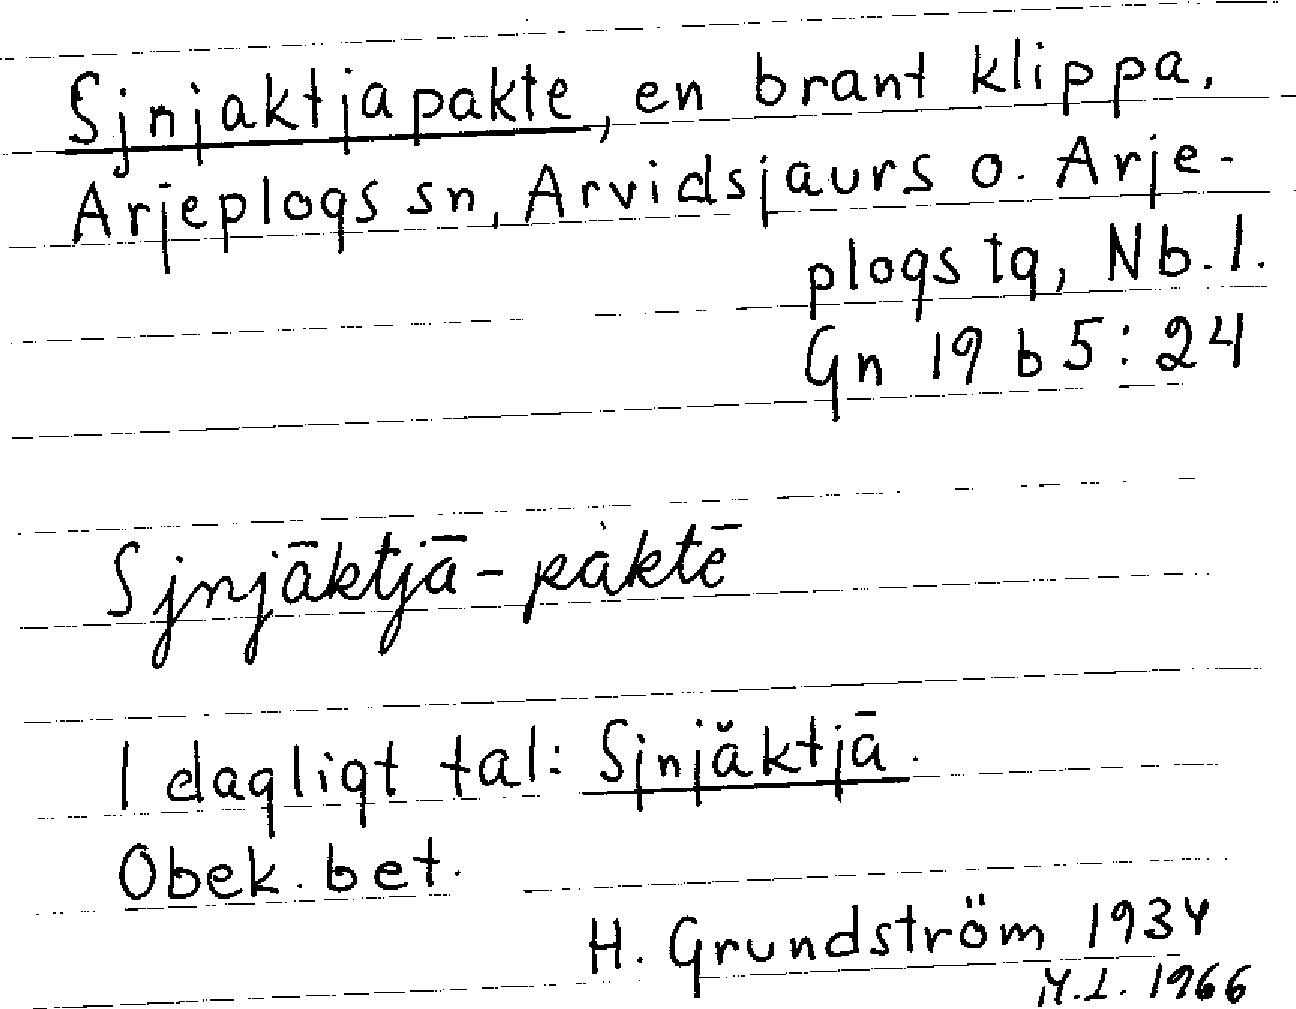 Sjnjaktjapakte, en brant klippa,
Arjeplogs sn, Arvidsjaurs o. Arje-
plogs tg, Nb. l.
Gn 19 b 5:24
Sjnjāktjā-pàktē
I dagligt tal: Sjnjăktjā.
Obek. bet.
H. Grundström 1934
M.L. 1966